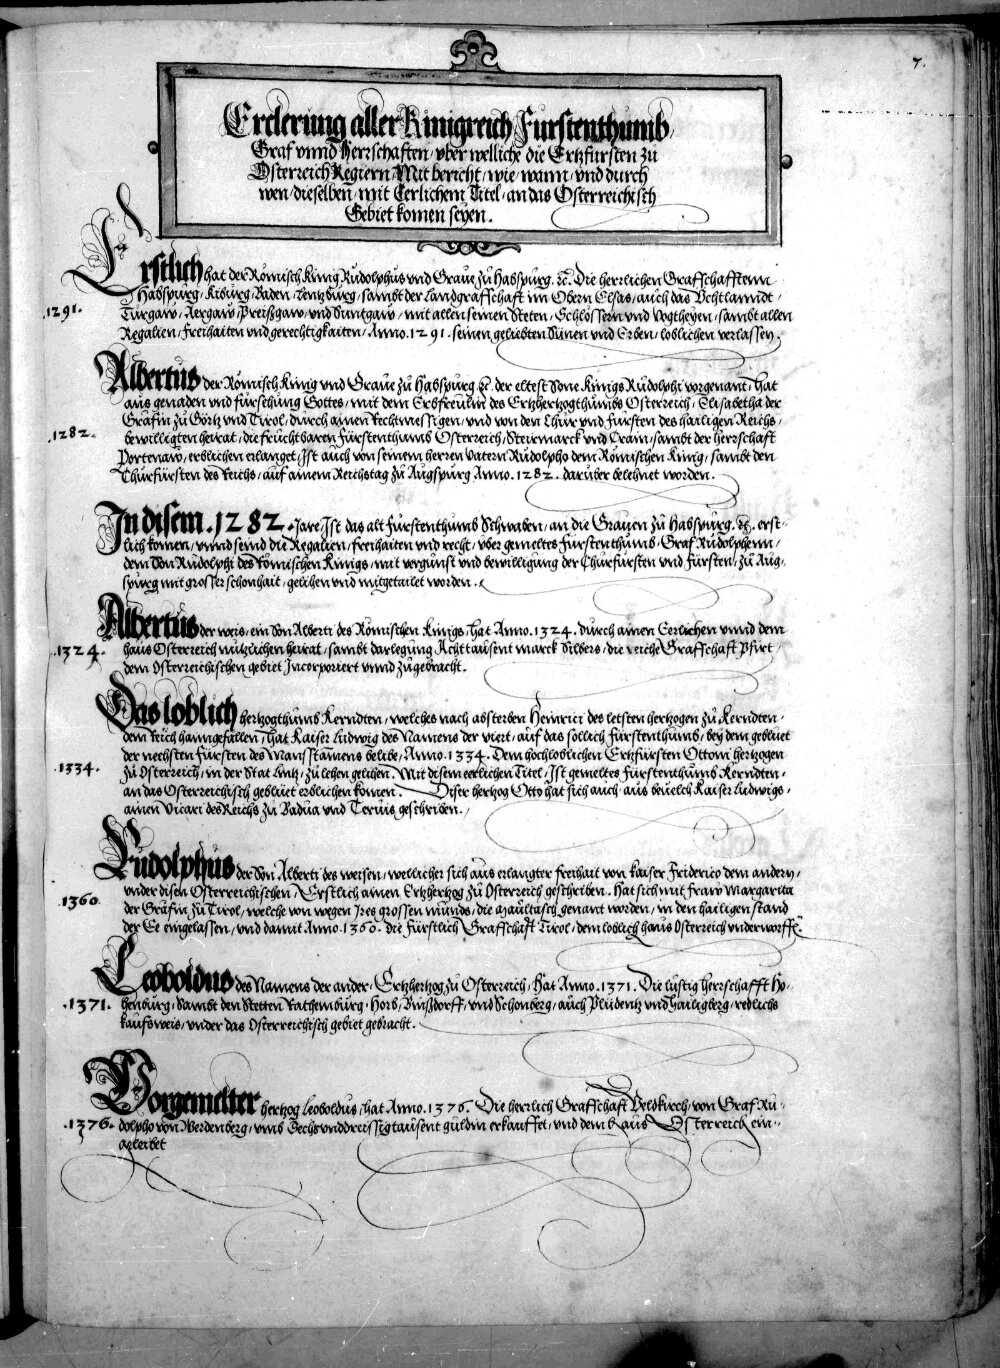 7.
Erclerung aller Kinigreich Furstenthumb,
Graf vnnd Herrschaften, vber welliche die Ertzfürsten zu
Osterreich Regiern, Mit bericht, wie, wann, vnd durch
wen, dieselben, mit Eerlichem Titel, an das Osterreichisch
Gebiet komen seyen.
Erstlich hat der Römisch Künig Rudolphus vnd Graue zu Habspurg. etc. Die herrlichen Graffschafften
.1291. Habspurg, Kiburg, Baden, Lentzburg, sambt der Landgraffschaft im Obern Elsas, auch das Vchtlanndt,
Turgaw, Aergaw, Preißgaw, vnd Suntgaw, mit allen seinen Steten, Schlössern vnd Vogtheyen, sambt allen
Regalien, freihaiten vnd gerechtigkaiten, Anno. 1291. seinen geliebten Sünen vnd Erben, loblichen verlassen.
Albertus der Römisch Künig vnd Graue zu Habspurg. etc. der eltest Sone Künigs Rudolphi vorgenant, hat
aus genaden vnd fürsehung Gottes, mit dem Erbfreulin des Ertzhertzogthumbs Osterreich, Elisabetha der
Gräfin zu Görtz vnd Tirol, durch ainen Rechtmessigen, vnd von den Chur vnd Fürsten des hailigen Reichs,
.1282. bewilligten heirat, die fruchtbaren Fürstenthumb Osterreich, Steirmarck vnd Crain, sambt der Herrschaft
Portenaw, erblichen erlanget, Ist auch von seinem herren Vatern Rudolpho dem Römischen Künig, sambt den
Churfürsten des Reichs, auf ainem Reichstag zu Augspurg Anno. 1282. darüber belehnet worden.
In disem .1282. Jare, Ist das alt Fürstenthumb Schwaben, an die Grauen zu Habspurg. etc. erst-
lich komen, vnnd seind die Regalien, freihaiten vnd recht, vber gemeltes Fürstenthumb, Graf Rudolphenn,
dem Son Rudolphi des Römischen Künigs, mit vergunst vnd bewilligung der Churfürsten vnd Fürsten, zu Aug-
spurg mit grosser schonhait, gelihen vnd mitgetailet worden.
Albertus der weis, ein Son Alberti des Römischen Künigs, hat Anno. 1324. durch ainen Eerlichen vnnd dem
.1324. haus Osterreich nützlichen heirat, sambt darlegung Acht tausent marck Silbers, die reiche Graffschaft Pfirt,
dem Osterreichischen gebiet Incorporiert vnnd zugebracht.
Das loblich hertzogthumb Kerndten, welches nach absterben Heinrici des letsten hertzogen zu Kerndten,
dem Reich haimgefallen, hat Kaiser Ludwig des Namens der viert, auf das sollich Fürstenthumb, bey dem gebluet
der nechsten Fürsten des Manßstammens belibe, Anno. 1334. Dem hochloblichen Ertzfürsten Ottoni hertzogen
.1334. zu Osterreich, in der Stat Lintz, zu lehen gelihen. Mit disem eerlichen Titel, Ist gemeltes Fürstenthumb Kerndten,
an das Osterreichisch gebluet erblichen komen. Diser hertzog Otto hat sich auch aus beuelch Kaiser Ludwigs,
ainen Vicari des Reichs zu Padua vnd Teruis geschriben.
Rudolphus der Son Alberti des weisen, wellicher sich aus erlangter freihait von kaiser Friderico dem andern,
vnder disen Osterreichischen, Erstlich ainen Ertzhertzog zu Osterreich geschriben. Hat sich mit fraw Margarita
.1360. der Gräfin zu Tirol, welche von wegen Ires grossen munds, die Maultasch genant worden, in den hailigen stand
der Ee eingelassen, vnd damit Anno. 1360. die fürstlich Graffschaft Tirol, dem loblich haus Osterreich vnderworffen.
Leoboldus des Namens der ander, Ertzhertzog zu Osterreich, Hat Anno. 1371. Die lustig herrschafft Ho-
.1371. henburg, Sambt den Stetten Rathemburg, Horb, Binßdorff, vnd Schonberg, auch Pludentz vnd Hailigberg, redlichs
kaufsweis, vnder das Osterreichisch gebiet gebracht.
Vorgemelter hertzog Leoboldus, hat Anno. 1376. Die herrlich Graffschaft Veldkirch, von Graf Ru-
.1376. dolpho von Werdenberg, vmb Sechsvnddreissigtausent guldin erkauffet, vnd dem haus Osterreich ein-
geleibet